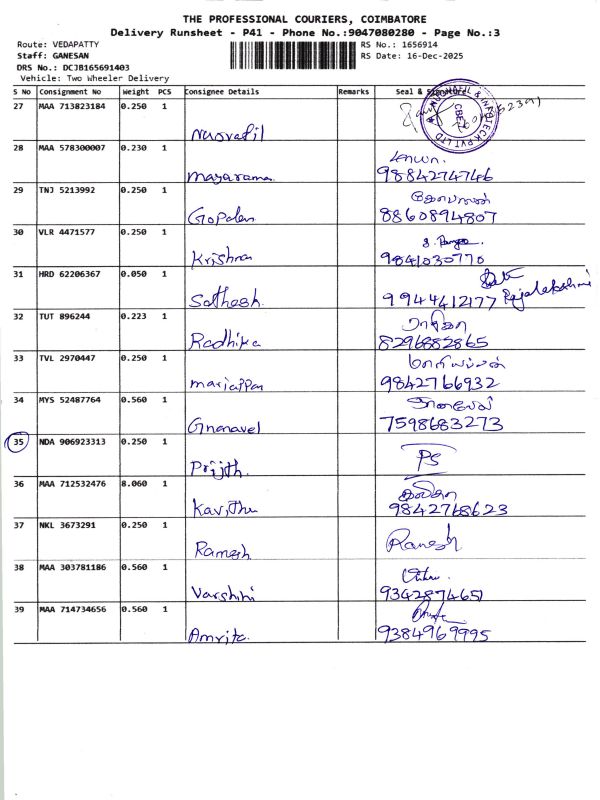 THE PROFESSIONAL COURIERS, COIMBATORE
Delivery Runsheet - P41 - Phone No.:9047080280 - Page No.:3
Route: VEDAPATTY RS No.: 1656914
Staff: GANESAN RS Date: 16-Dec-2025
DRS No.: DCJB165691403
Vehicle: Two Wheeler Delivery
S No Consignment No Weight PCS Consignee Details Remarks Seal & Signature
27 MAA 713823184 0.250 1
28 MAA 578300007 0.230 1
Mayarama 9884274746
29 TNJ 5213992 0.250 1
Gopalan 8860894807
30 VLR 4471577 0.250 1
Krishna 9841030770
31 HRD 62206367 0.050 1
Sathesh 9944412177 Rajalakshmi
32 TUT 896244 0.223 1 ராதிகா
Radhika 8296882865
33 TVL 2970447 0.250 1 மாரியப்பன்
mariappan 9842766932
34 MYS 52487764 0.560 1
Gnanavel 7598683273
35 NDA 906923313 0.250 1 PS
Prijith
36 MAA 712532476 8.060 1 கவிதா
Kavitha 9842768623
37 NKL 3673291 0.250 1 Ramesh
Ramesh
38 MAA 303781186 0.560 1
Varshini 9342874651
39 MAA 714734656 0.560 1
Amrita 9384969995